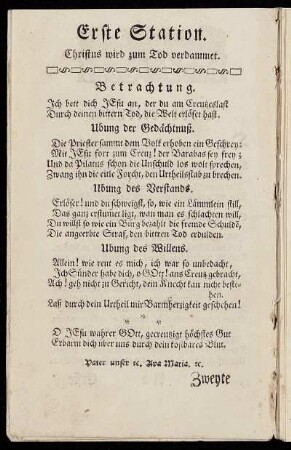 Erste Station.
Christus wird zum Tod verdammet.
Betrachtung.
Ich bett dich JEsu an, der du am Creutzeslast
Durch deinen bittern Tod, die Welt erlöset hast.
Ubung der Gedächtnuß.
Die Priester sammt dem Volk erhoben ein Geschrey:
Mit JEsu fort zum Creuz! der Barabas sey frey;
Und da Pilatus schon die Unschuld los wolt sprechen,
Zwang ihn die eitle Forcht, den Urtheilsstab zu brechen.
Ubung des Verstands.
Erlöser! und du schweigst, so, wie ein Lämmlein still,
Das ganz erstumet ligt, wan man es schlachten will,
Du willst so wie ein Bürg bezahlt die fremde Schuld,
Die angeerbte Straf, den bittren Tod erdulden.
Ubung des Willens.
Allein! wie reut es mich, ich war so unbedacht,
Ich Sünder habe dich, ô GOtt! ans Creuz gebracht,
Ach! geh nicht zu Gericht, dein Knecht kan nicht beste-
hen.
Lass durch dein Urtheil mir Barmherzigkeit geschehen!
* * *
O JEsu wahrer GOtt, gecreutzigt höchstes Gut
Erbarm dich über uns durch dein kostbares Blut.
Pater unser ec. Ava Maria. ec.
Zweyte